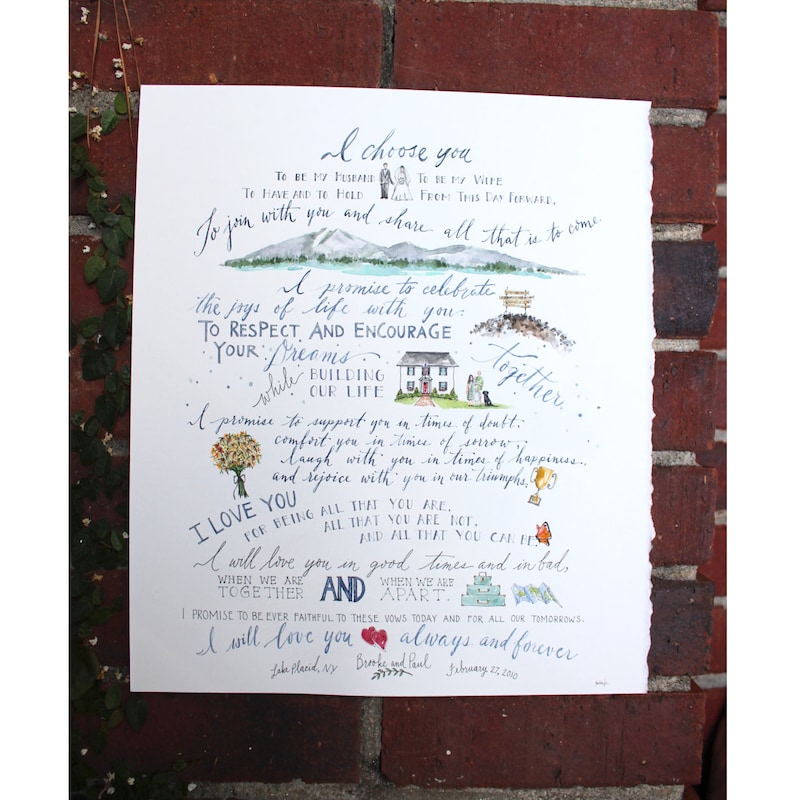 I choose you
To be my Husband To be my Wife
To Have and to Hold From This Day Forward,
To join with you and share all that is to come
I promise to celebrate
the joys of life with you:
To Respect And Encourage
Your Dreams
while BUILDING
OUR LIFE together.
I promise to support you in times of doubt;
comfort you in times of sorrow;
laugh with you in times of happiness;
and rejoice with you in our triumphs.
I LOVE YOU
FOR BEING ALL THAT YOU ARE,
ALL THAT YOU ARE NOT,
AND ALL THAT YOU CAN BE.
I will love you in good times and in bad,
WHEN WE ARE TOGETHER AND WHEN WE ARE APART.
I PROMISE TO BE EVER FAITHFUL TO THESE VOWS TODAY AND FOR ALL OUR TOMORROWS.
I will love you always and forever
Lake Placid, NY Brooke and Paul February 27, 2010